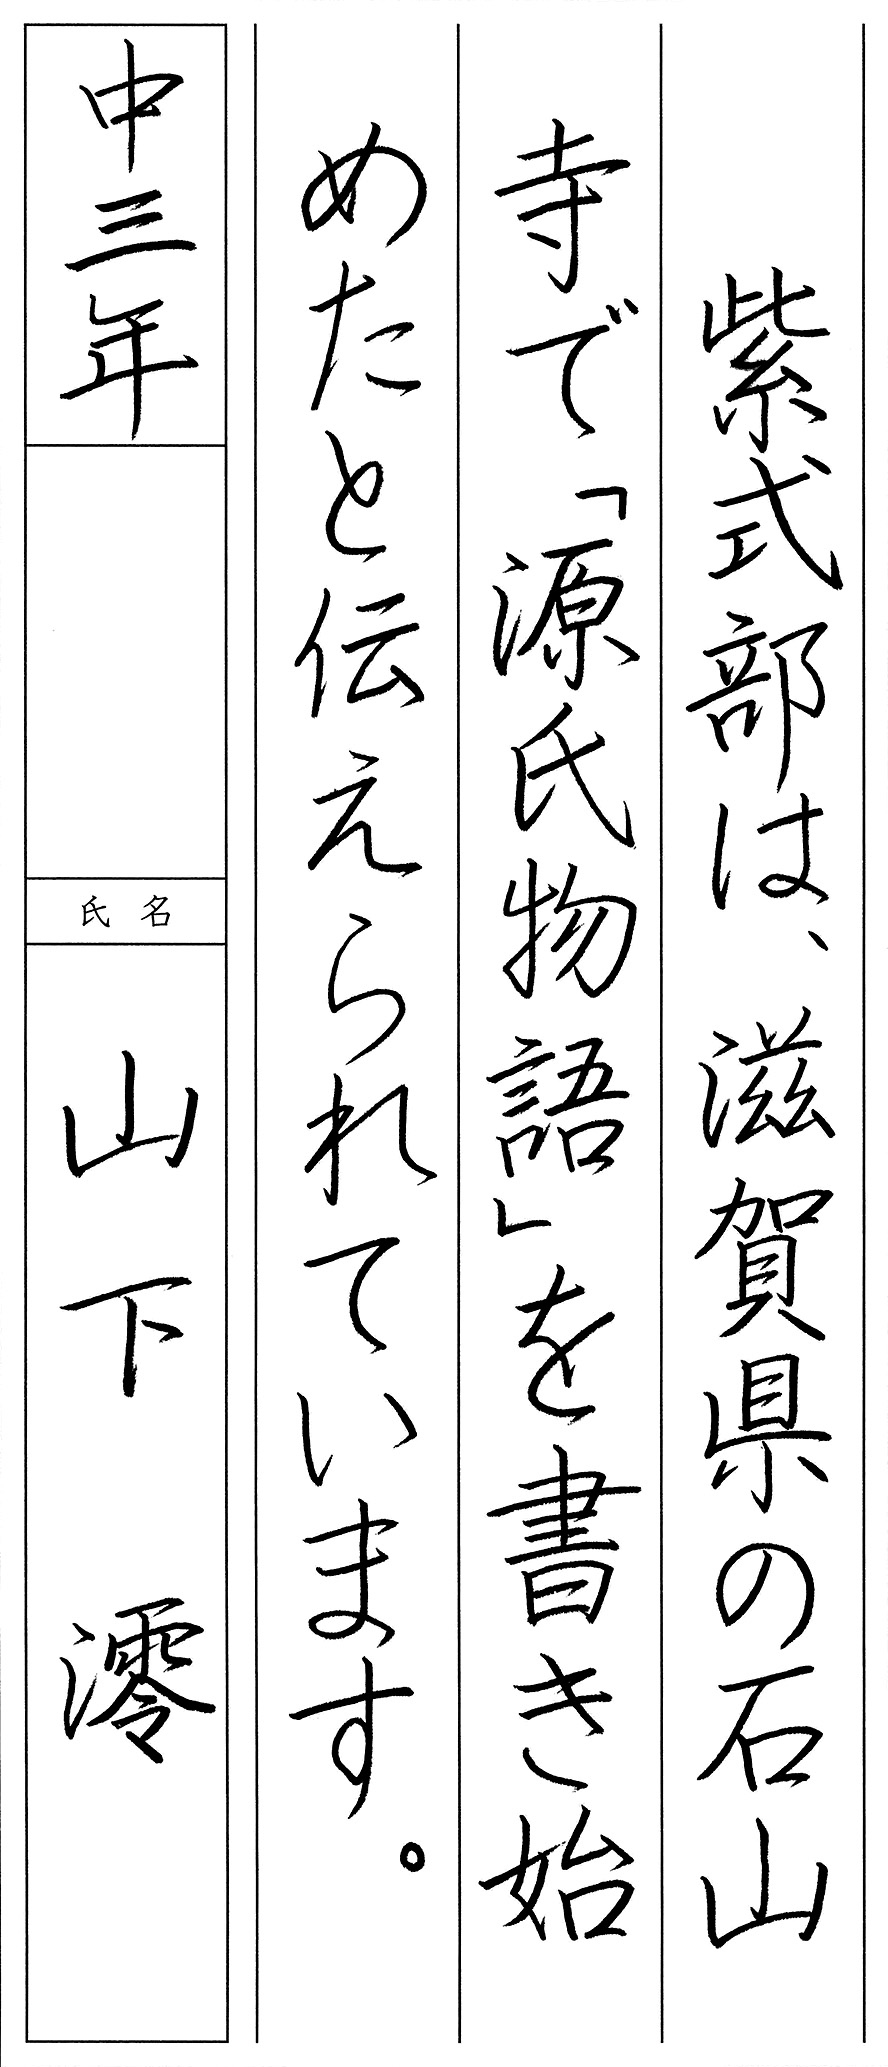 紫式部は、滋賀県の石山
寺で「源氏物語」を書き始
めたと伝えられています。
中三年
氏名
山下 澪